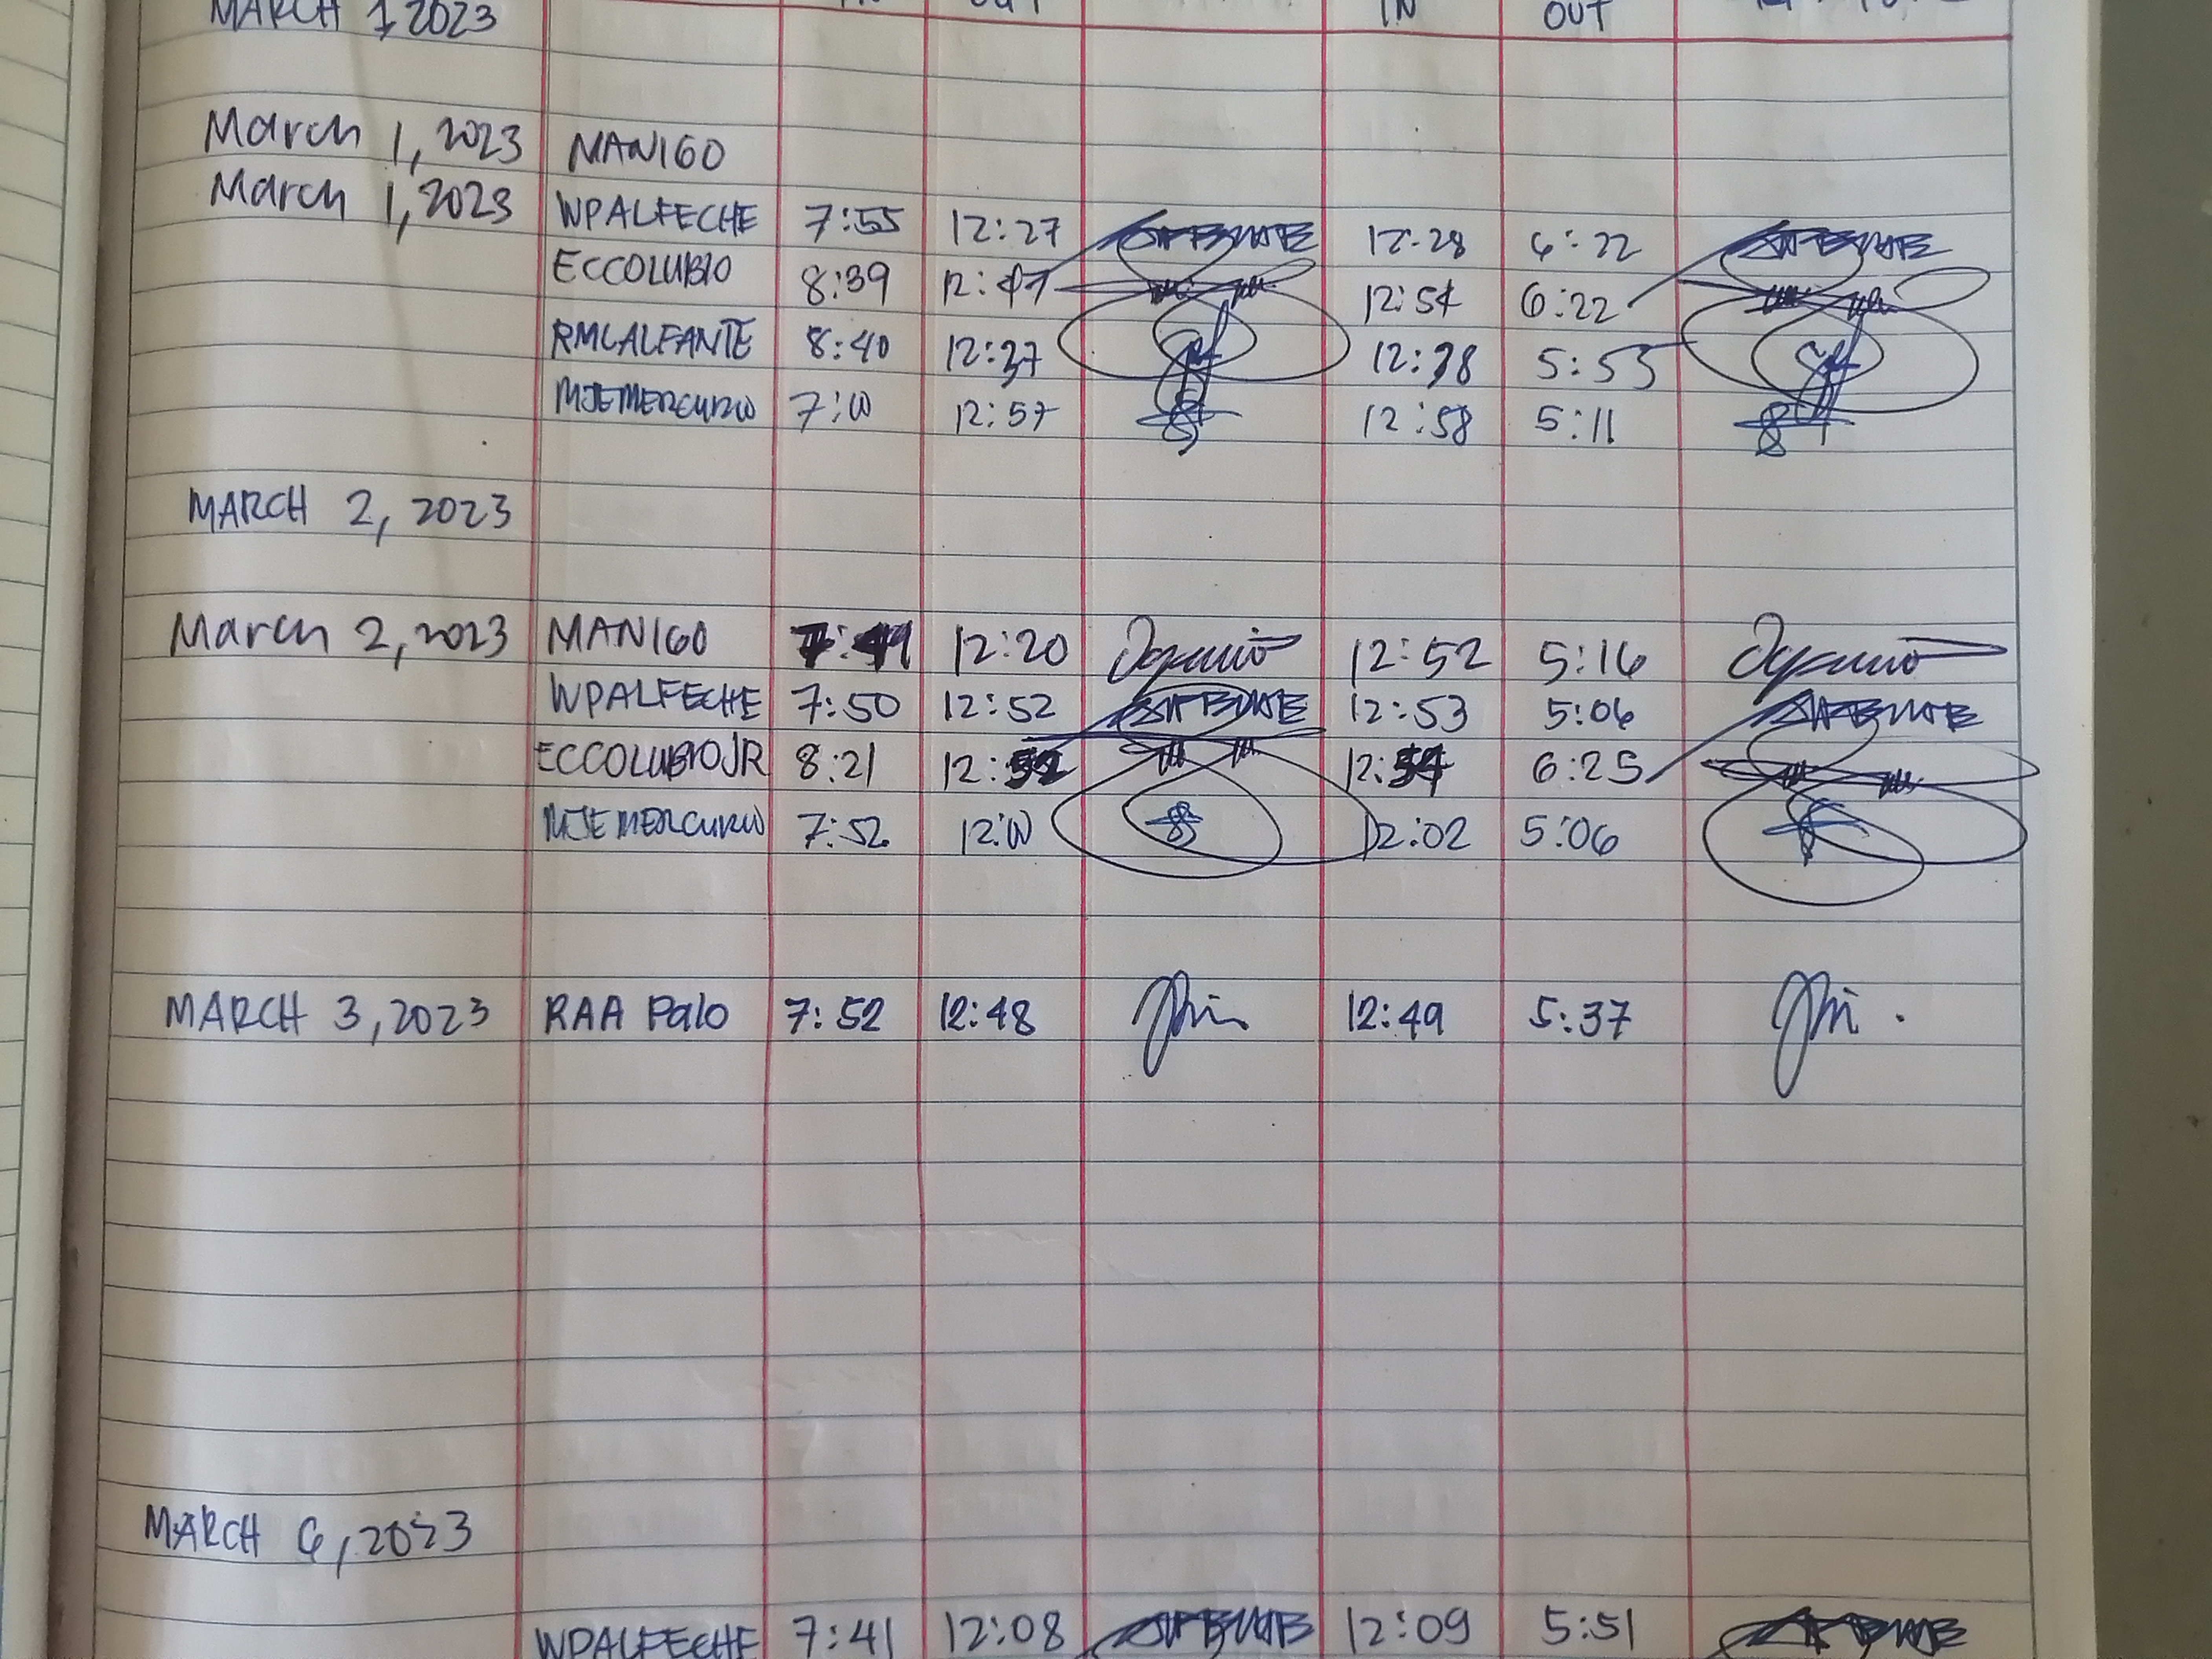 MARCH 1, 2023 OUT IN OUT
March 1, 2023 MANIGO
March 1, 2023 WPALFECHE 7:55 12:27 12:28 6:22
ECCOLUBIO 8:39 12:47 12:54 6:22
RMCALFANTE 8:40 12:37 12:38 5:53
MJEMERCURIO 7:00 12:57 12:58 5:11
MARCH 2, 2023
March 2, 2023 MANIGO 12:20 12:52 5:16
WPALFECHE 7:50 12:52 12:53 5:06
ECCOLUBIOJR 8:21 12: 12:54 6:25
MJEMERCURIO 7:52 12:00 12:02 5:06
MARCH 3, 2023 RAA Palo 7:52 12:48 12:49 5:37
MARCH 6, 2023
WPALFECHE 7:41 12:08 12:09 5:51